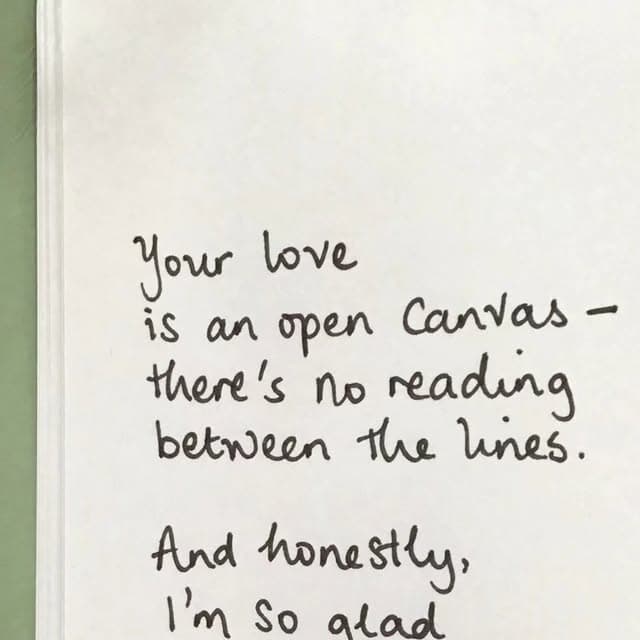 Your love
is an open canvas –
there's no reading
between the lines.
And honestly,
I'm so glad